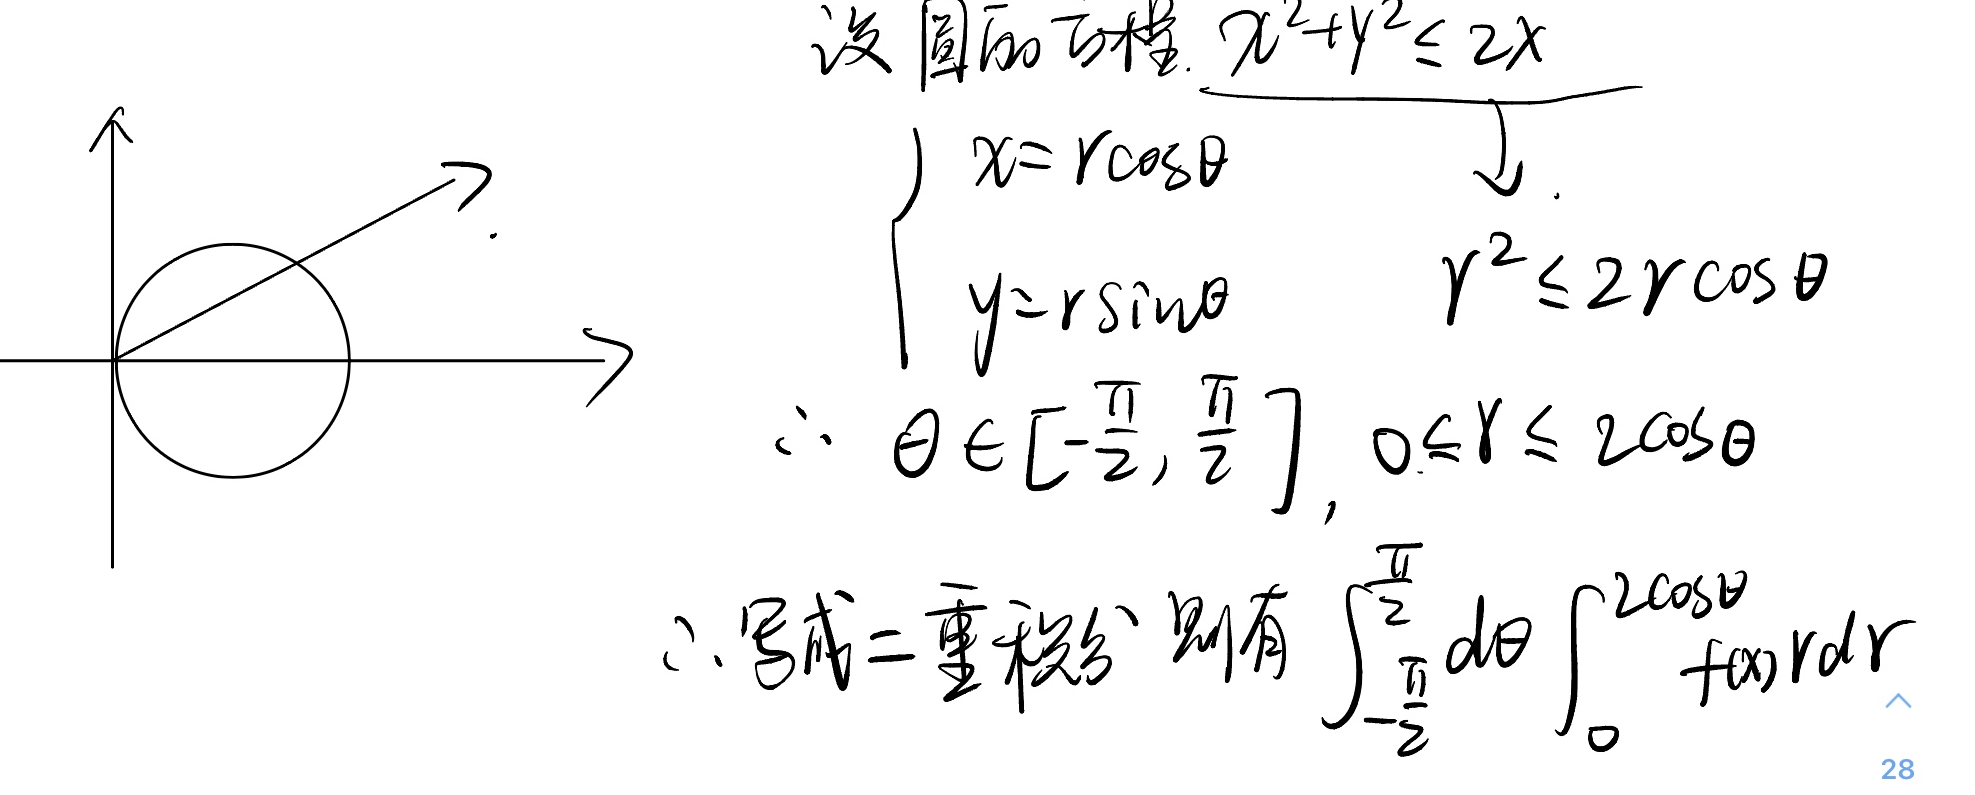 设圆的方程. x²+y² ≤ 2x
x = rcosθ
y = rsinθ
r² ≤ 2rcosθ
∴ θ ∈ [-π/2, π/2], 0 ≤ r ≤ 2cosθ
∴ 写成二重积分 则有 ∫_{-π/2}^{π/2} dθ ∫_0^{2cosθ} f(x) r dr
28